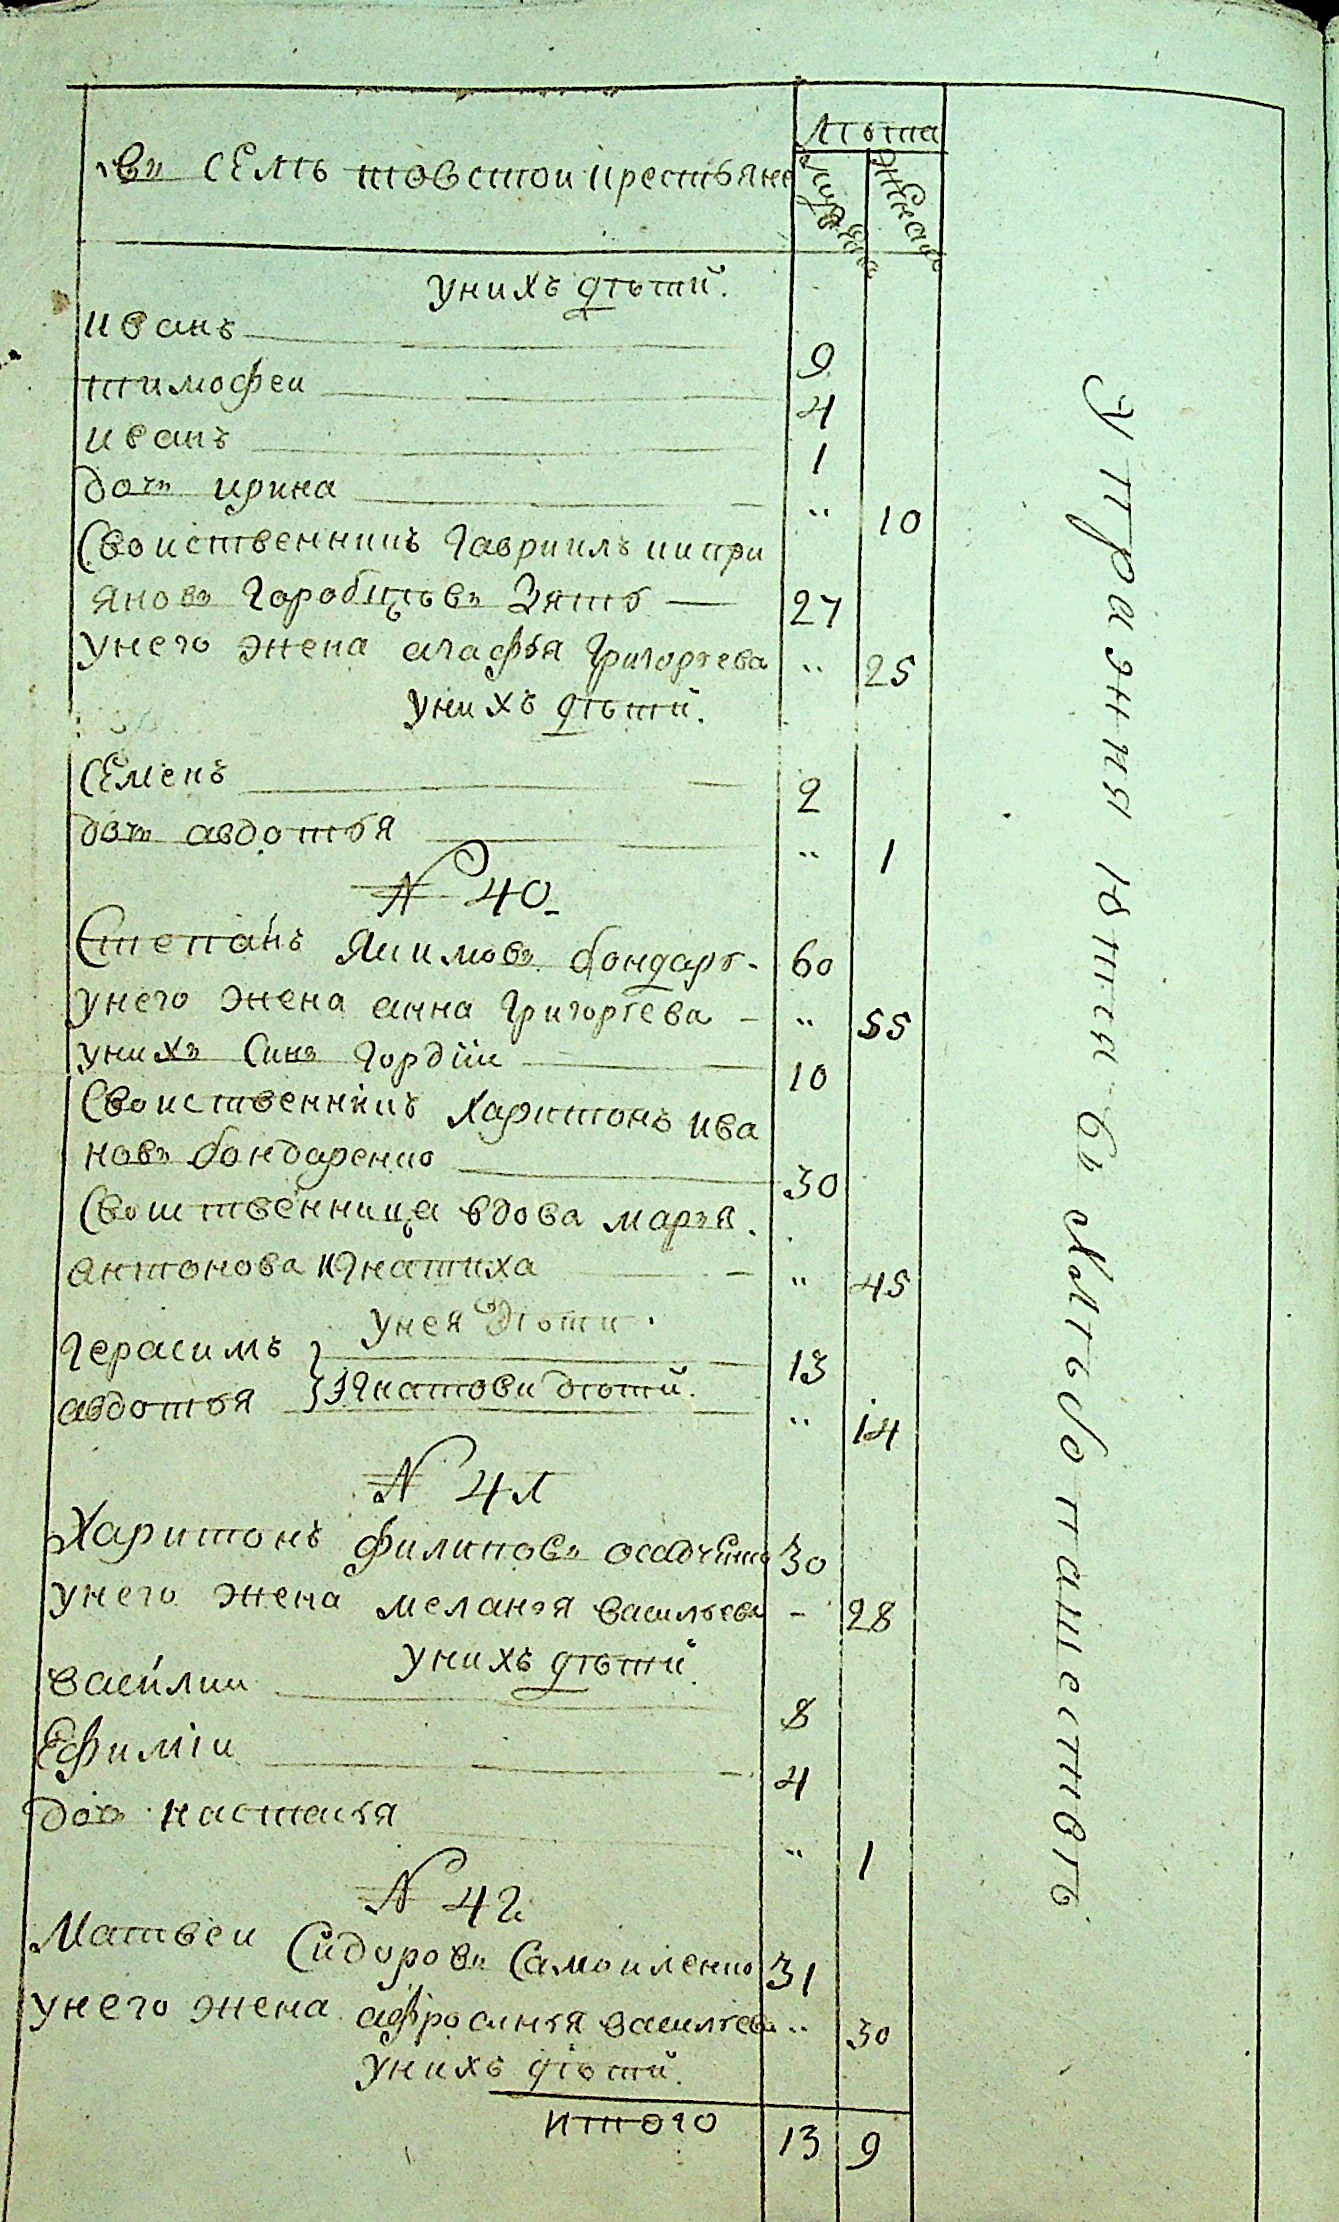 въ селѣ товстой крестьянъ
лѣта
мужеска
женска
у нихъ дѣтей.
иванъ 9
тимофеи 4
иванъ 1
дочь ирина " 10
Своиственникъ Гавриилъ кипри
яновъ Горобцовъ Зять — 27
унего жена агафья Григорьева " 25
унихъ дѣтей.
Семенъ 2
дочь авдотья " 1
N 40
Степанъ Якимовъ бондарь 60
унего жена анна Григорьева " 55
унихъ Синъ Гордій 10
Своиственникъ Харитонъ ива
новъ бондаренко 30
Своиственница вдова марья
антонова Игнатиха " 45
унея дѣти.
Герасимъ 13
авдотья } Игнатови дѣтей. " 14
N 41
Харитонъ филиповъ осадченко 30
унего жена меланья васильева - 28
унихъ дѣтей
василии 8
Ефимій 4
дочь настасья " 1
N 42
Матвеи Сидоровъ Самоиленко 31
унего жена афросинья васильева " 30
унихъ дѣтей.
итого 13 9
Упражнения имѣя въ хлѣбопашествѣ